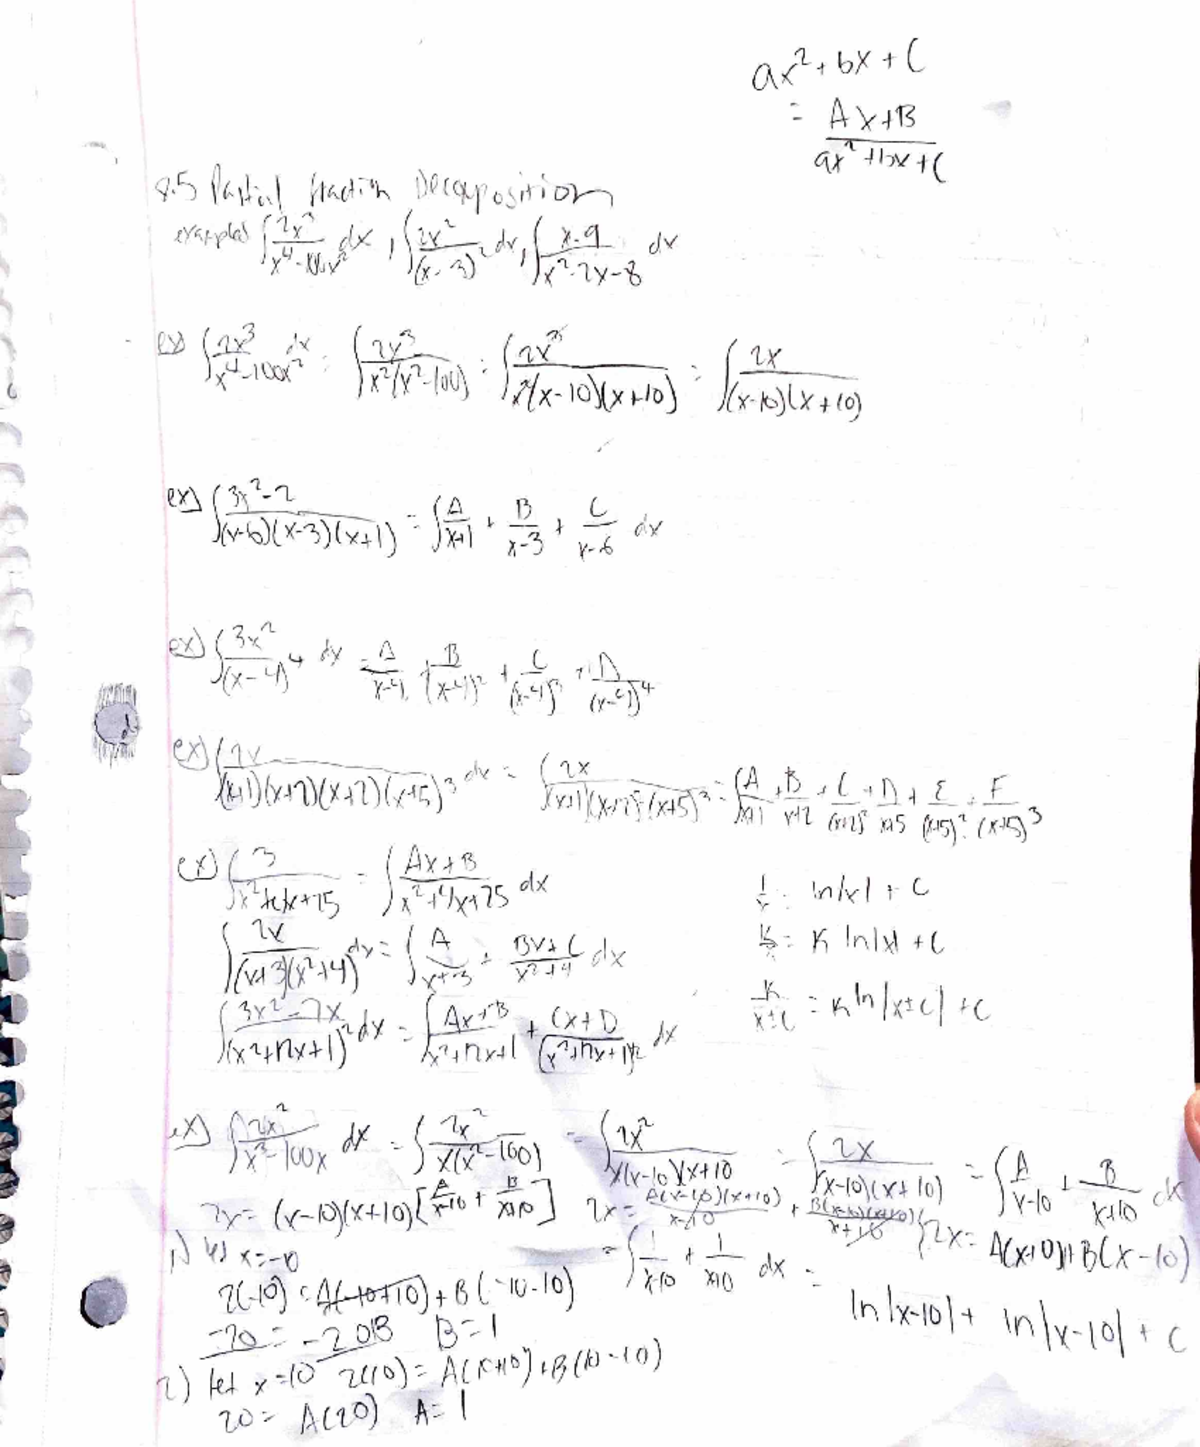 ax² + bx + C
= (Ax+B)/(ax²+bx+C)
8.5 Partial fraction Decomposition
examples ∫ 2x³/(x⁴-100x²) dx, ∫ 2x²/(x-3)² dx, ∫ (x-9)/(x²-2x-8) dx
ex) ∫ 2x³/(x⁴-100x²) dx = ∫ 2x³/(x²(x²-100)) = ∫ 2x³/(x²(x-10)(x+10)) = ∫ 2x/((x-10)(x+10))
ex) ∫ (3x²-2)/((x-6)(x-3)(x+1)) = ∫ A/(x+1) + B/(x-3) + C/(x-6) dx
ex) ∫ 3x²/(x-4)⁴ dx = A/(x-4) + B/(x-4)² + C/(x-4)³ + D/(x-4)⁴
ex) ∫ 2x/((x+1)(x+2)(x+2)(x+5)³) dx = ∫ 2x/((x+1)(x+2)²(x+5)³) = ∫ A/(x+1) + B/(x+2) + C/(x+2)² + D/(x+5) + E/(x+5)² + F/(x+5)³
ex) ∫ 3/(x²+4x+25) = ∫ (Ax+B)/(x²+4x+25) dx
1/x = ln|x| + C
∫ 2x/((x+3)(x²+4)) dx = ∫ A/(x+3) + (Bx+C)/(x²+4) dx
k/x = K ln|x| + C
∫ (3x²-7x)/(x²+12x+1)² dx = ∫ (Ax+B)/(x²+12x+1) + (Cx+D)/(x²+12x+1)² dx
K/(x±C) = K ln|x±C| + C
ex) ∫ 2x²/(x³-100x) dx = ∫ 2x²/(x(x²-100)) = ∫ 2x²/(x(x-10)(x+10)) = ∫ 2x/((x-10)(x+10)) = ∫ A/(x-10) + B/(x+10) dx
2x = (x-10)(x+10)[A/(x-10) + B/(x+10)] 2x = A(x-10)(x+10)/(x-10) + B(x-10)(x+10)/(x+10) { 2x = A(x+10)+B(x-10)
1) let x=-10
= ∫ 1/(x-10) + 1/(x+10) dx =
2(-10) = A(-10+10) + B(-10-10)
ln|x-10| + ln|x-10| + C
-20 = -20B B=1
2) let x=10 2(10) = A(10+10)+B(10-10)
20 = A(20) A=1